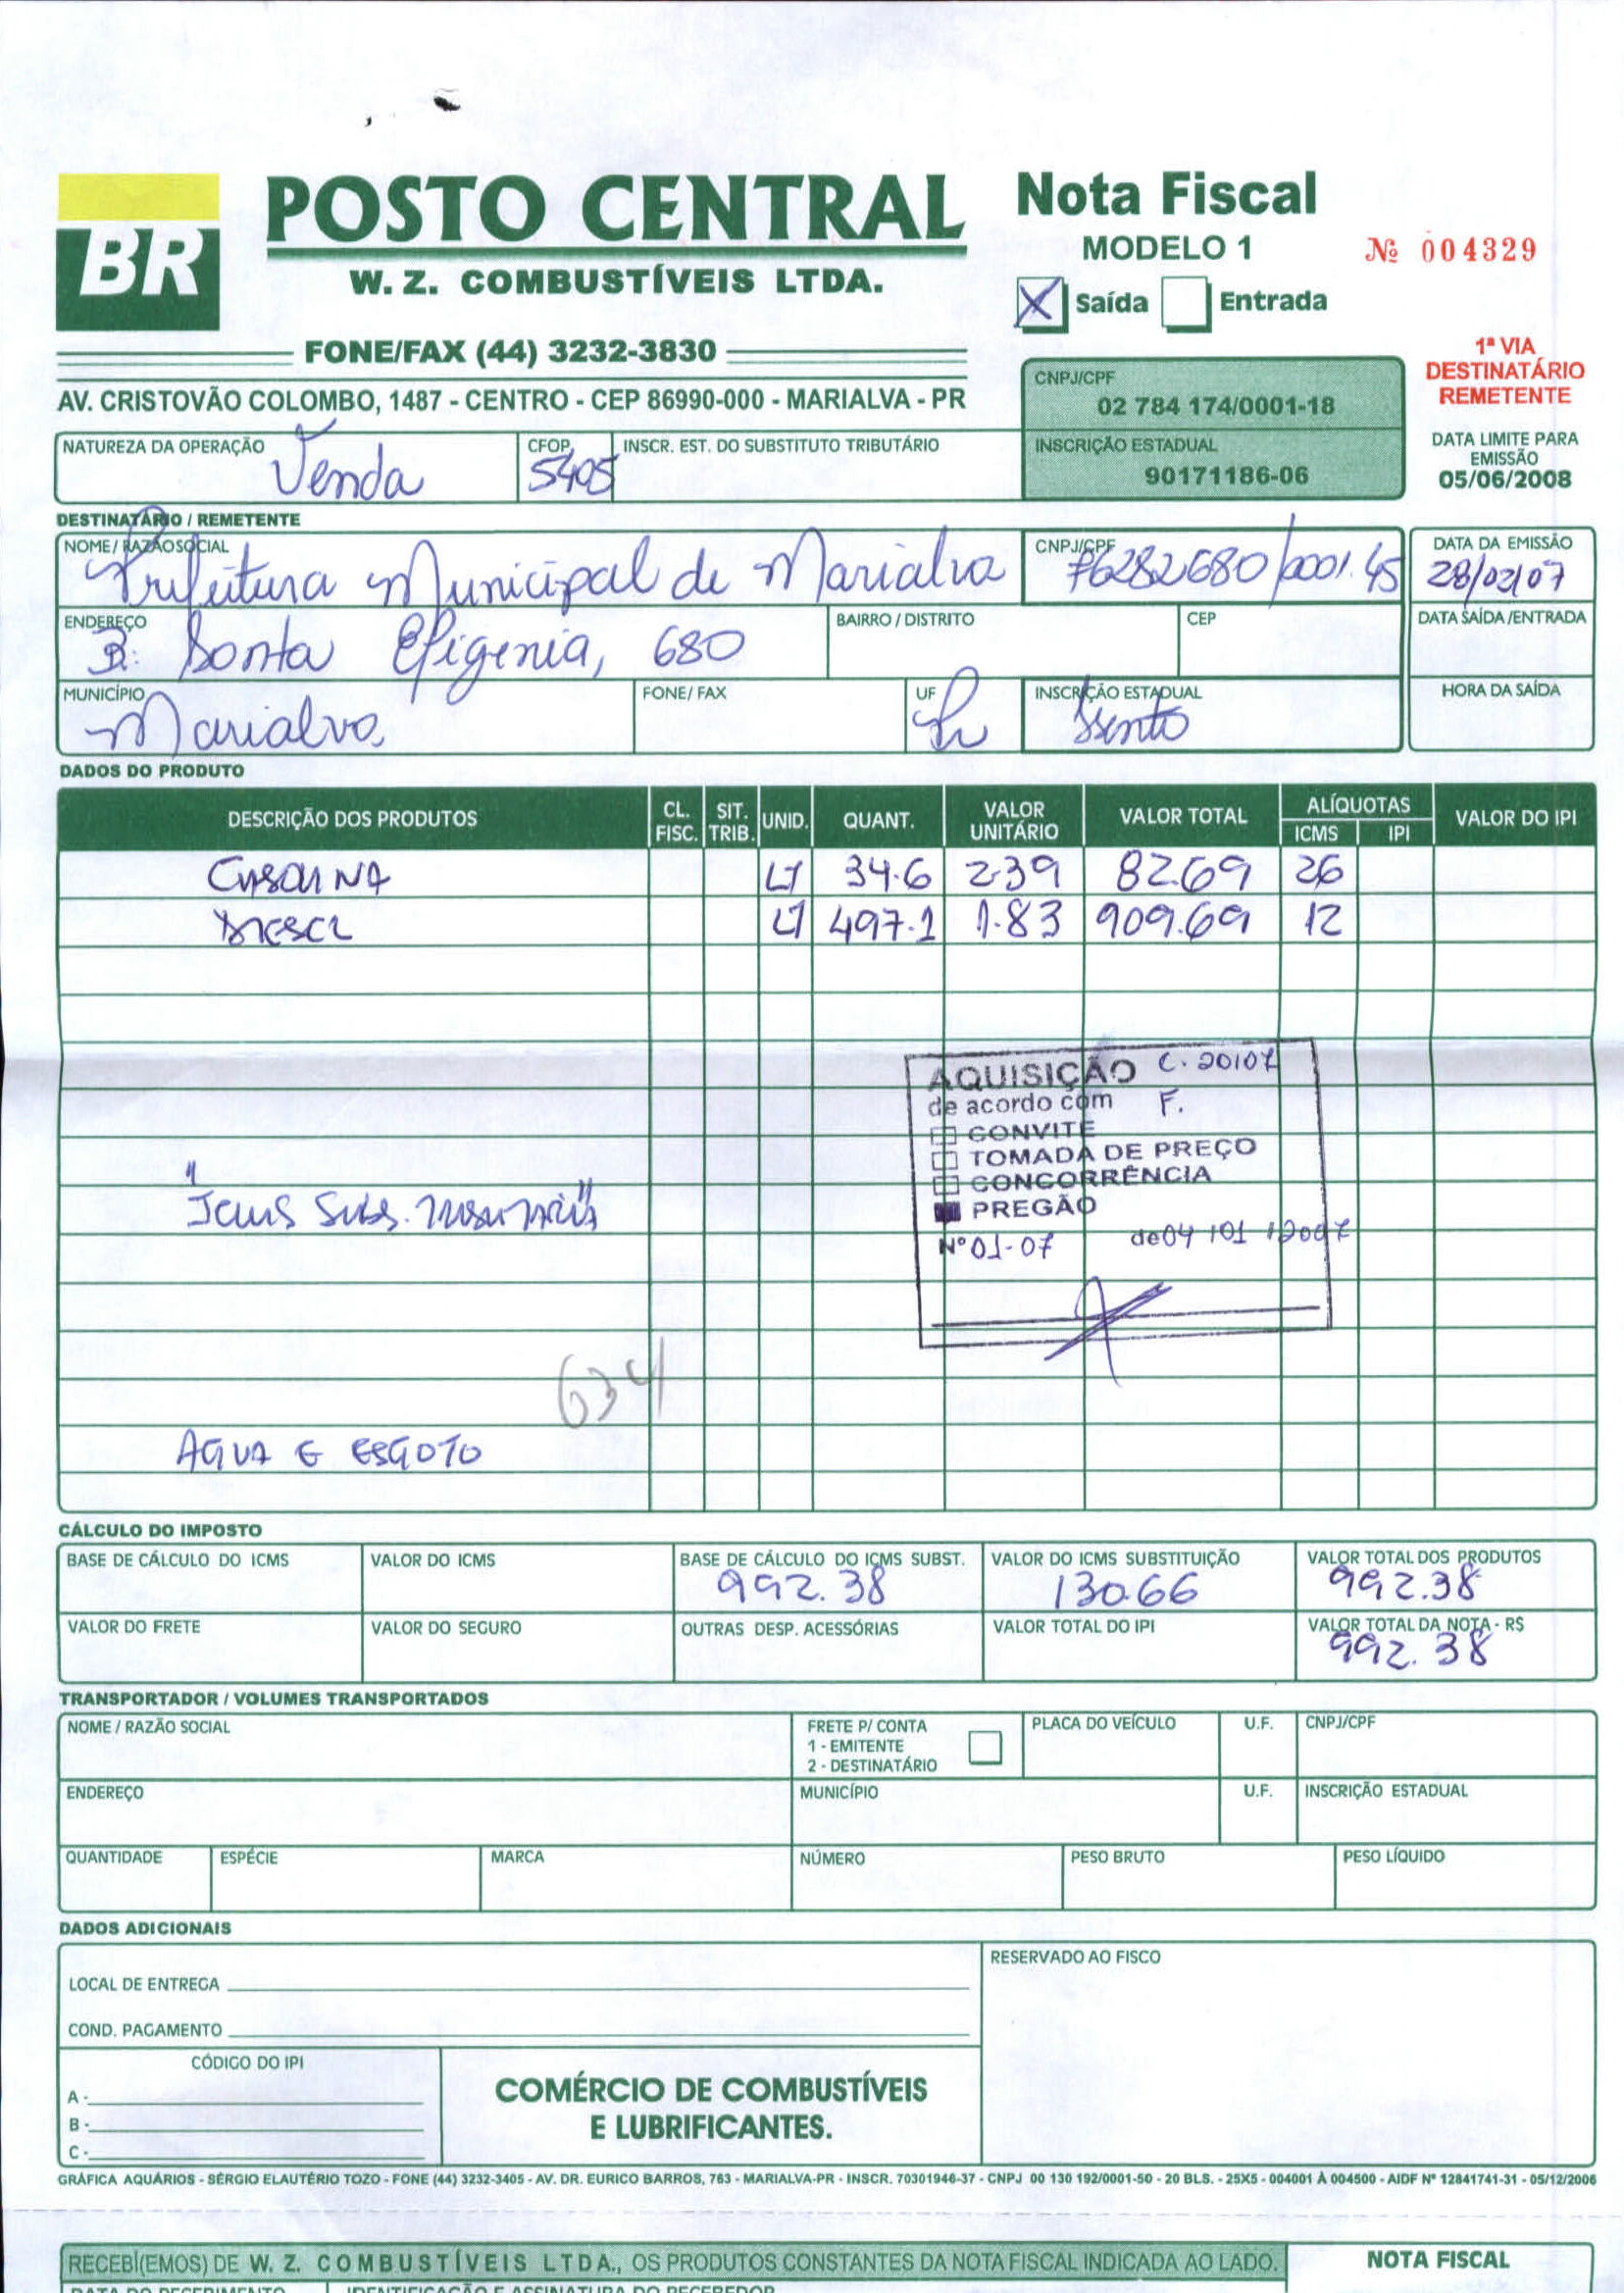 BR
POSTO CENTRAL
W. Z. COMBUSTÍVEIS LTDA.
FONE/FAX (44) 3232-3830
AV. CRISTOVÃO COLOMBO, 1487 - CENTRO - CEP 86990-000 - MARIALVA - PR
Nota Fiscal
MODELO 1
Nº 004329
X Saída Entrada
1ª VIA
DESTINATÁRIO
REMETENTE
CNPJ/CPF
02 784 174/0001-18
INSCRIÇÃO ESTADUAL
90171186-06
DATA LIMITE PARA
EMISSÃO
05/06/2008
NATUREZA DA OPERAÇÃO Venda
CFOP 5405
INSCR. EST. DO SUBSTITUTO TRIBUTÁRIO
DESTINATÁRIO / REMETENTE
NOME / RAZÃO SOCIAL
Prefeitura Municipal de Marialva
CNPJ/CPF
76282680/0001.45
DATA DA EMISSÃO
28/02/07
ENDEREÇO
R: Santa Efigenia, 680
BAIRRO / DISTRITO
CEP
DATA SAÍDA / ENTRADA
MUNICÍPIO
Marialva
FONE / FAX
UF
Pr
INSCRIÇÃO ESTADUAL
Isento
HORA DA SAÍDA
DADOS DO PRODUTO
DESCRIÇÃO DOS PRODUTOS CL. FISC. SIT. TRIB. UNID. QUANT. VALOR UNITÁRIO VALOR TOTAL ALÍQUOTAS ICMS IPI VALOR DO IPI
GASOLINA LT 34.6 2.39 82.69 26
DIESEL LT 497.1 1.83 909.69 12
AQUISIÇÃO C. 20107
de acordo com F.
CONVITE
TOMADA DE PREÇO
CONCORRÊNCIA
PREGÃO
Nº 01-07 de 04 / 01 / 2007
"Icms Subs. Tributária"
634
AGUA E ESGOTO
CÁLCULO DO IMPOSTO
BASE DE CÁLCULO DO ICMS
VALOR DO ICMS
BASE DE CÁLCULO DO ICMS SUBST.
992.38
VALOR DO ICMS SUBSTITUIÇÃO
130.66
VALOR TOTAL DOS PRODUTOS
992.38
VALOR DO FRETE
VALOR DO SEGURO
OUTRAS DESP. ACESSÓRIAS
VALOR TOTAL DO IPI
VALOR TOTAL DA NOTA - R$
992.38
TRANSPORTADOR / VOLUMES TRANSPORTADOS
NOME / RAZÃO SOCIAL
FRETE P/ CONTA
1 - EMITENTE
2 - DESTINATÁRIO
PLACA DO VEÍCULO
U.F.
CNPJ/CPF
ENDEREÇO
MUNICÍPIO
U.F.
INSCRIÇÃO ESTADUAL
QUANTIDADE
ESPÉCIE
MARCA
NÚMERO
PESO BRUTO
PESO LÍQUIDO
DADOS ADICIONAIS
LOCAL DE ENTREGA
COND. PAGAMENTO
RESERVADO AO FISCO
CÓDIGO DO IPI
A -
B -
C -
COMÉRCIO DE COMBUSTÍVEIS
E LUBRIFICANTES.
GRÁFICA AQUÁRIOS - SÉRGIO ELAUTÉRIO TOZO - FONE (44) 3232-3405 - AV. DR. EURICO BARROS, 763 - MARIALVA-PR - INSCR. 70301946-37 - CNPJ 00 130 192/0001-50 - 20 BLS. - 25X5 - 004001 À 004500 - AIDF Nº 12841741-31 - 05/12/2006
RECEBI(EMOS) DE W. Z. COMBUSTÍVEIS LTDA., OS PRODUTOS CONSTANTES DA NOTA FISCAL INDICADA AO LADO.
NOTA FISCAL
DATA DO RECEBIMENTO
IDENTIFICAÇÃO E ASSINATURA DO RECEBEDOR